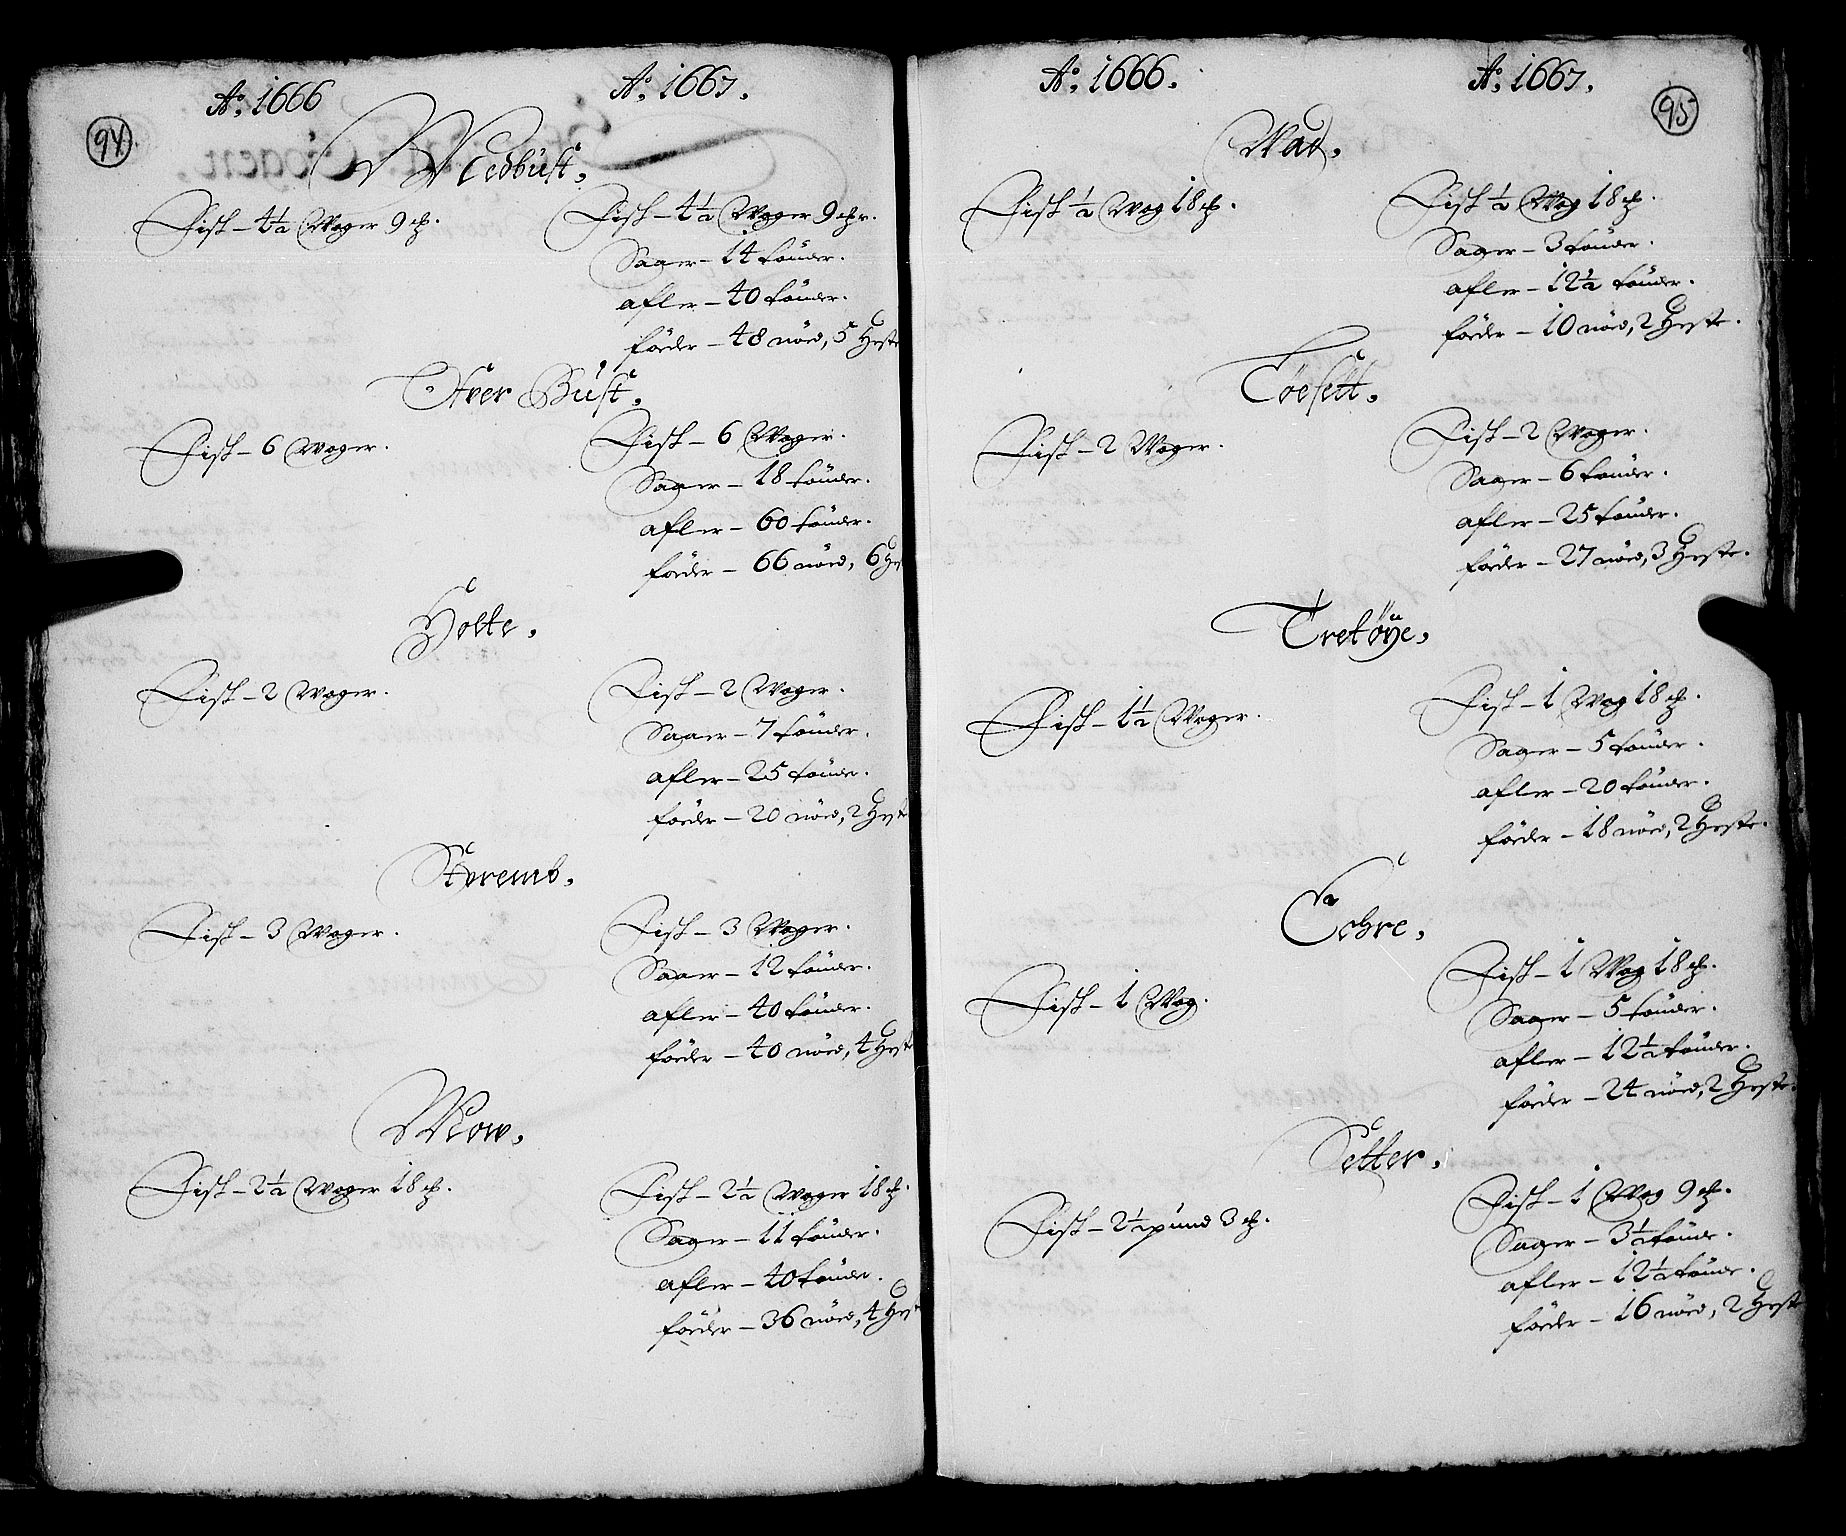 94.
Ao. 1666
Ao. 1667.
Nedbust.
Fisk – 4½ Woger 9 ℔.
Fisk – 4½ Woger 9 ℔r.
Saaer – 14 tönder.
afler – 40 tönder.
föeder – 48 nöed, 5 Heste
Ofver Bust.
Fisk – 6 Woger.
Fisk – 6 Woger.
Saaer – 18 tönder.
afler – 60 tönder.
föeder – 66 nöed, 6 He
Holte.
Fisk – 2 Woger.
Fisk – 2 Woger.
Saaer – 7 tönder.
afler – 25 tönde.
föeder – 20 nöed, 2 Hest
Fisk – 3 Woger.
Fisk – 3 Woger.
Saaer – 12 tönder.
afler – 40 tönder.
föeder – 40 nöed, 4 Hest
Mow.
Fisk – 2½ Woger 18 ℔.
Fisk – 2½ Woger 18 ℔.
Saaer – 11 tönder.
afler – 40 tönde.
föeder – 36 nöed, 4 Hest
95
Ao. 1666.
Ao. 1667.
Wad.
Fisk ½ Wog 18 ℔.
Fisk ½ Wog 18 ℔.
Saaer – 3 tönder.
afler – 12½ tönder.
föeder – 10 nöed, 2 Heste.
Töesett.
Fisk – 2 Woger.
Fisk – 2 Woger.
Saaer – 6 tönder.
afler – 25 tönder.
föeder – 27 nöed, 3 Heste.
Tretöye.
Fisk – 1½ Woger.
Fisk – 1 Wog 18 ℔.
Saaer – 5 tönder.
afler – 20 tönder.
föeder – 18 nöed, 2 Heste.
Fisk – 1 Wog.
Fisk – 1 Wog 18 ℔.
Saaer – 5 tönder.
afler – 12½ tönder.
föeder – 24 nöed, 2 Heste.
Setter.
Fisk – 2½ pund 3 ℔.
Fisk – 1 Wog 9 ℔.
Saaer – 3½ tönde.
afler – 12½ tönde.
föeder – 16 nöed, 2 Heste